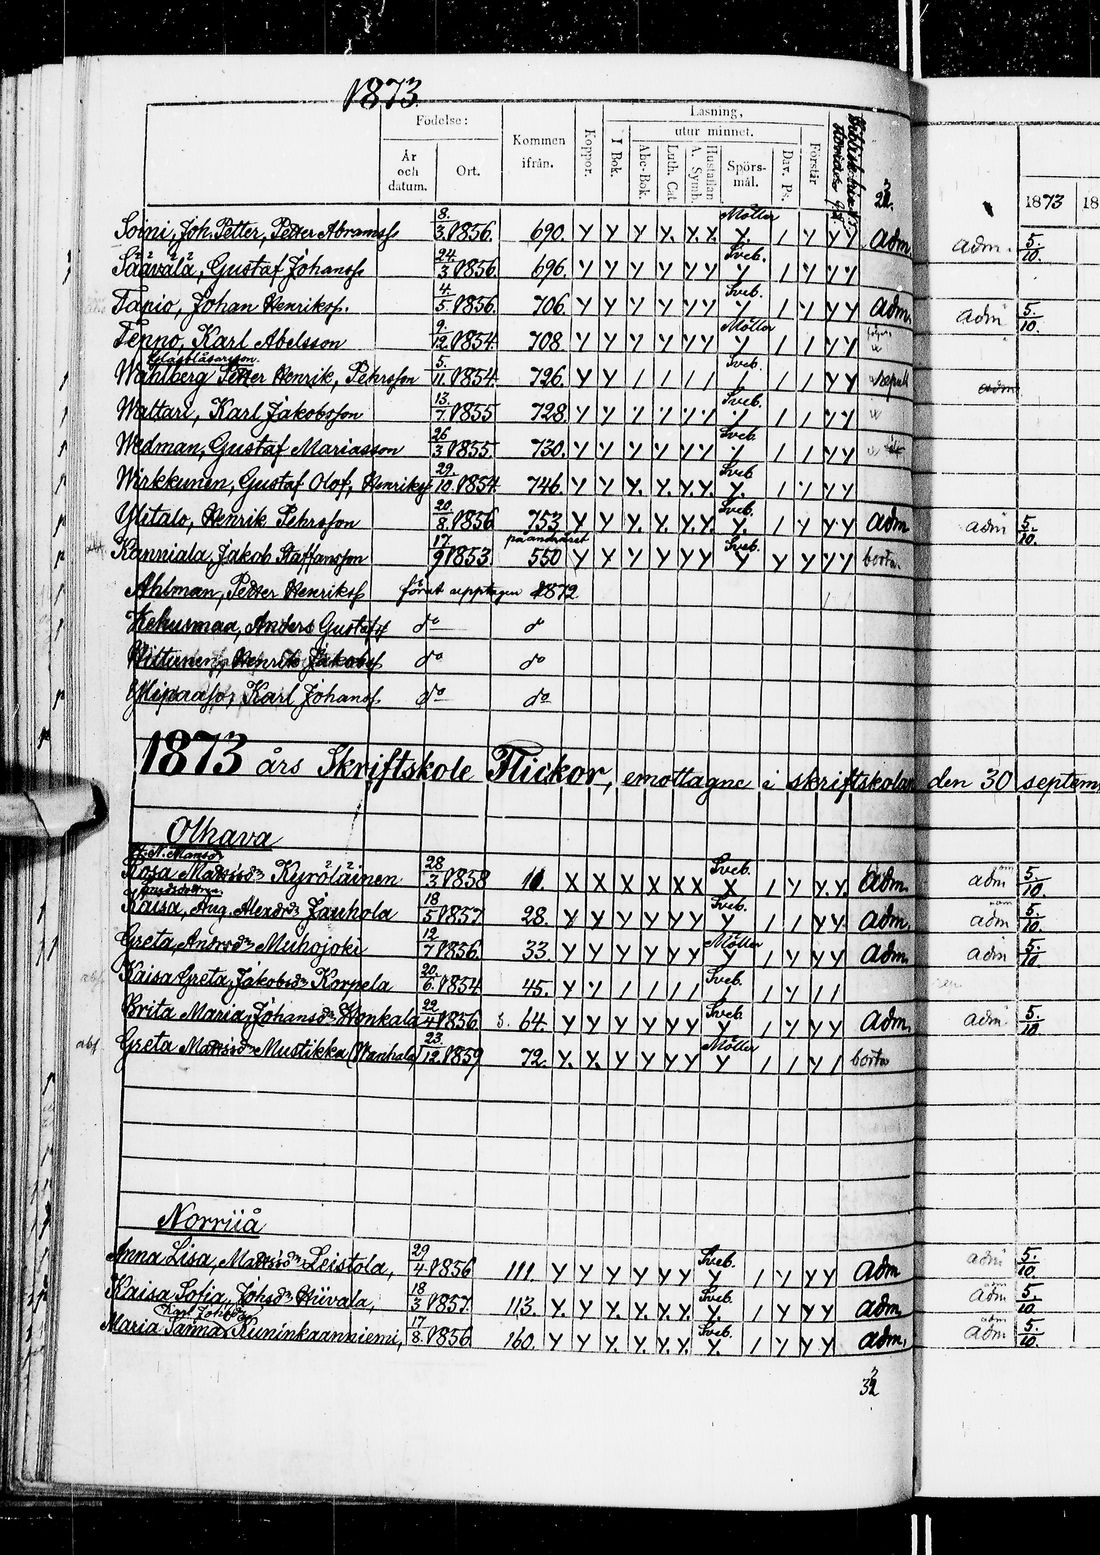 1873
Födelse: Kommen ifrån. Koppor. Läsning, Förstår
År och datum. Ort. I Bok. utur minnet.
Abc-Bok. Luth. Cat. A. Symb. Hustaflan Spörsmål. Dav. Ps.
1873
Soini, Joh. Petter, Petter Abramsf 8/3. 1856. 690. Y Y Y Y. Y. Y. Möller Y. / Y Y Y adm adm. 5/10.
Säävälä, Gustaf Johansf 24/3 1856. 696. Y Y Y Y Y Y Sveb. Y / Y Y Y
Tapio, Johan Henriksf. 4/5 1856. 706. Y Y Y Y Y Y Sveb. Y / Y Y Y adm. adm 5/10.
Tenno, Karl Abelsson 9/12 1854. 708. Y Y Y Y Y Y Möller Y / / Y Y
Wahlberg Petter Henrik, Pehrsson 5./11. 1854. 726. Y Y / / / / Sveb. / / / Y Y adm
Wattari, Karl Jakobsson 13./7. 1855 728. Y Y Y Y Y Y Sveb. Y / / Y Y
Wedman, Gustaf Mariasson 26/3 1855. 730. Y Y Y Y Y Y Sveb. Y / / Y Y
Wirkkunen, Gustaf Olof, Henriksf 29./10. 1854. 746. Y Y Y. Y. Y. Y. Sveb Y. / Y Y Y
Ylitalo, Henrik Pehrsson 20/8. 1856 753 Y Y Y. Y. Y. Y. Sveb. Y. / Y Y Y adm adm 5/10.
på andra året
Kanniala, Jakob Staffansson 17./9 1853. 550 Y Y Y Y Y Y Sveb. Y Y Y Y Y borta
Ahlman, Petter Henriksf förut upptagen 1872
Kehusmaa, Anders Gustafsf do do
Hiltunen, Henrik Jakobsf do do
Ylipaaso, Karl Johansf do do
1873 års Skriftskole Flickor, emottagne i skriftskolan den 30 septem
Olhava
Rosa Mattsdr Kyröläinen 28/3 1858 11. X X X X X X Sveb. X / Y Y. Y. adm. adm 5/10.
Kaisa, Aug. Alexdr Jauhola 18/5 1857. 28. Y Y Y Y Y Y Sveb. Y / / Y Y adm. adm 5/10.
Greta, Andersdr Muhojoki 12/7 1856. 33. Y Y Y Y Y Y Möller Y / Y Y Y adm. adm 5./10.
Kaisa Greta, Jakobsdr Korpela 20./6. 1854. 45. Y Y / / / / Sveb / / Y / /
Brita Maria, Johansdr Honkala 22/4 1856. 64. Y Y Y Y Y Y Sveb Y / Y Y Y adm. adm 5./10.
Greta Mattsdr Mustikka (Wanhala) 23./12 1859 72. Y. Y. Y Y Y Y Möller Y / / Y / borta
Norrijå
Anna Lisa, Mattsdr Leistola, 29/4. 1856 111. Y Y Y Y Y Y Sveb. Y / Y Y Y adm adm 5./10.
Kaisa Sofia, Johsdr Hiivala, 18/3 1857. 113. Y. Y. Y. Y. Y. Y. Sveb. Y. / Y Y Y adm. adm 5./10.
Karl Johsdr
Maria Sanna Kuninkaanniemi, 17/8. 1856 160. Y Y Y. Y. Y. Y. Sveb. Y. / Y Y Y adm. adm 5./10.